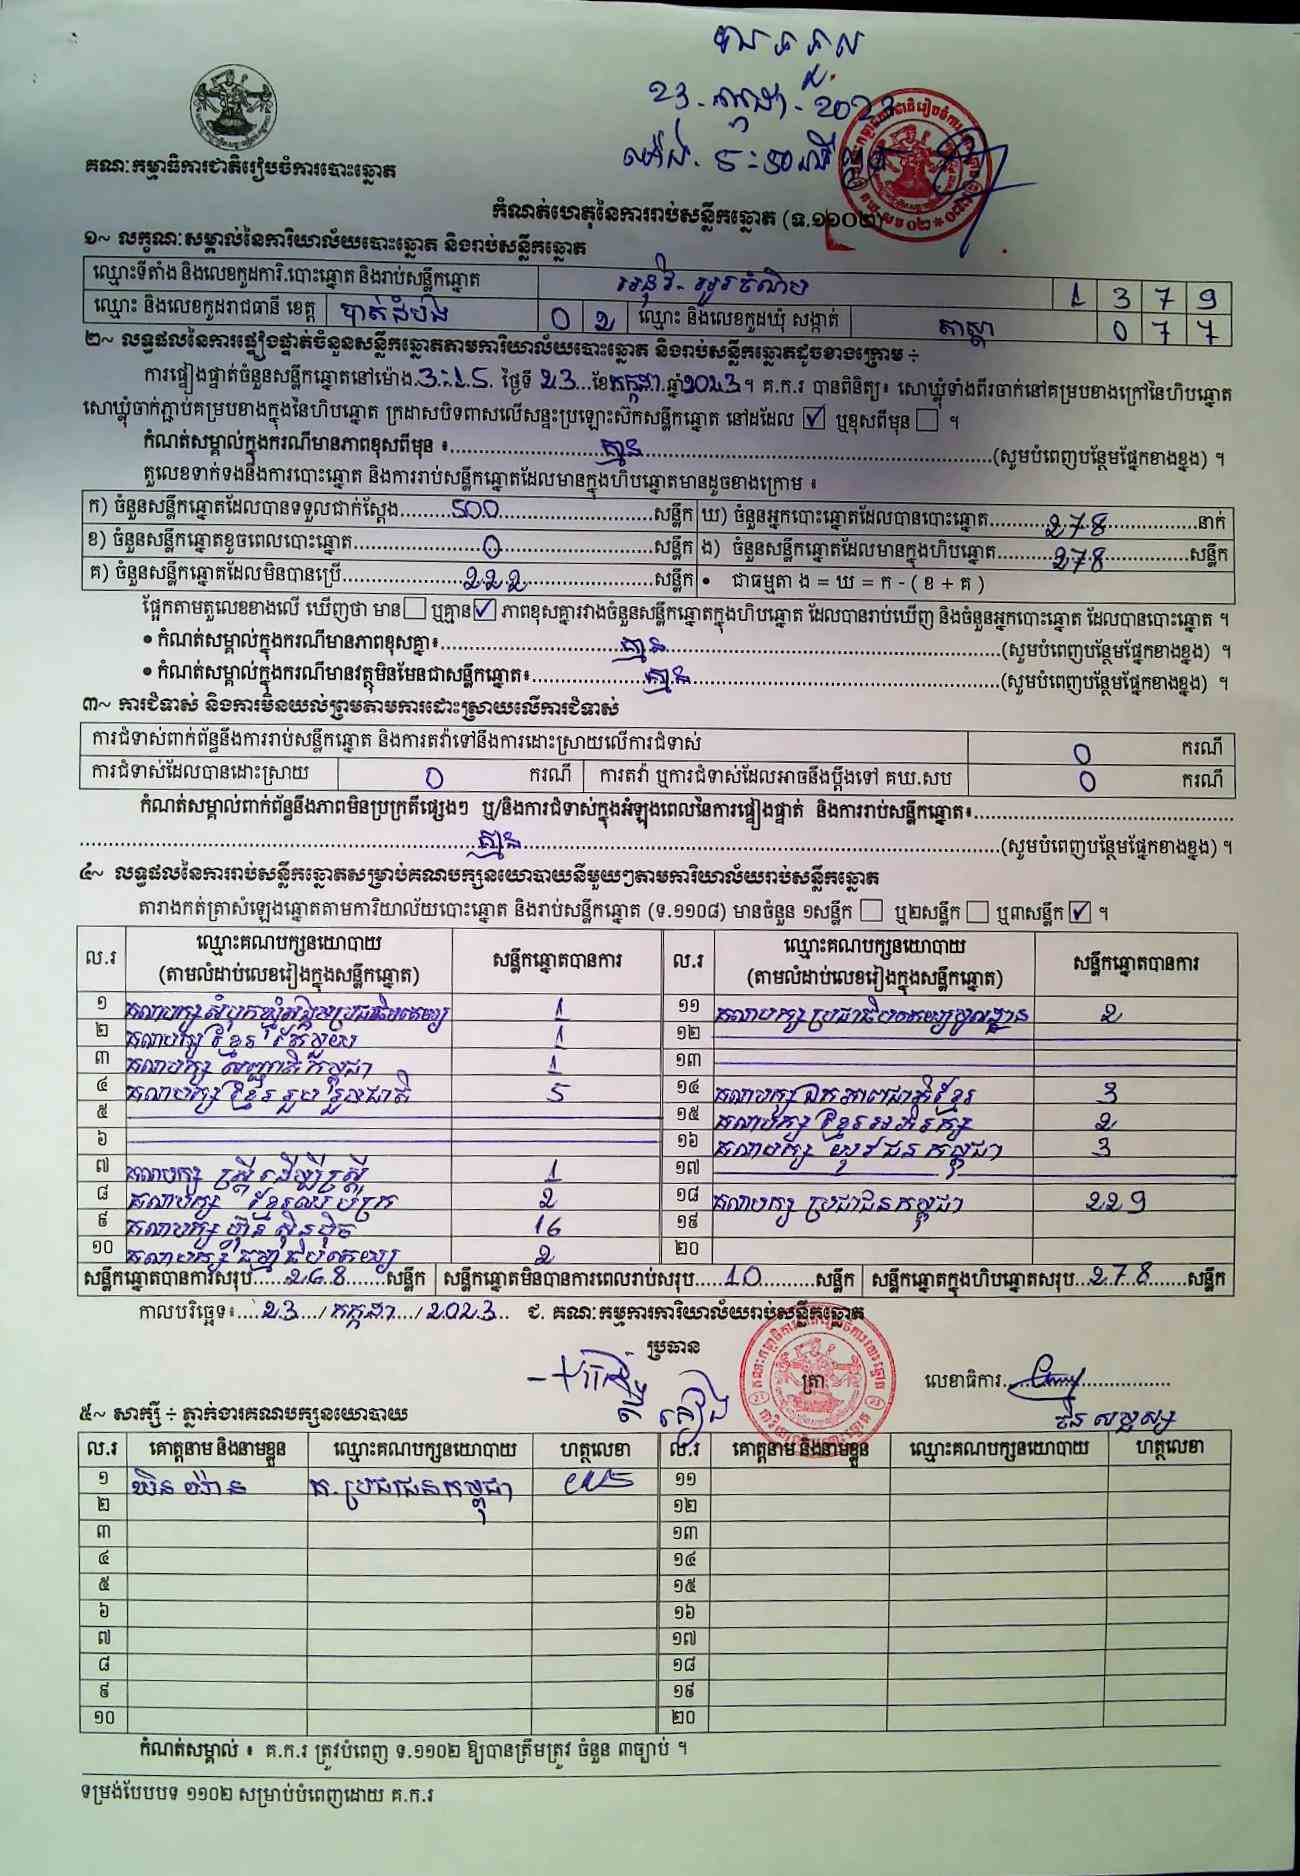 23 - កក្កដា - 2023
ម៉ោង 5:50
គណៈកម្មាធិការជាតិរៀបចំការបោះឆ្នោត
កំណត់ហេតុនៃការរាប់សន្លឹកឆ្នោត (ទ.១១០២)
១~ លក្ខណៈសម្គាល់នៃការិយាល័យបោះឆ្នោត និងរាប់សន្លឹកឆ្នោត
ឈ្មោះទីតាំង និងលេខកូដការិ.បោះឆ្នោត និងរាប់សន្លឹកឆ្នោត 1 3 7 9
ឈ្មោះ និងលេខកូដរាជធានី ខេត្ត បាត់ដំបង 0 2 ឈ្មោះ និងលេខកូដឃុំ សង្កាត់ 0 7 7
២~ លទ្ធផលនៃការផ្ទៀងផ្ទាត់ចំនួនសន្លឹកឆ្នោតតាមការិយាល័យបោះឆ្នោត និងរាប់សន្លឹកឆ្នោតដូចខាងក្រោម ÷
ការផ្ទៀងផ្ទាត់ចំនួនសន្លឹកឆ្នោតនៅម៉ោង 3:15 ថ្ងៃទី 23 ខែ កក្កដា ឆ្នាំ 2023 ។ គ.ក.រ បានពិនិត្យ៖ សោឃ្លុំទាំងពីរចាក់នៅគម្របខាងក្រៅនៃហិបឆ្នោត
សោឃ្លុំចាក់ភ្ជាប់គម្របខាងក្នុងនៃហិបឆ្នោត ក្រដាសបិទពាសលើសន្ទះប្រឡោះស៊កសន្លឹកឆ្នោត នៅដដែល ☑ ឬខុសពីមុន ☐ ។
កំណត់សម្គាល់ក្នុងករណីមានភាពខុសពីមុន ៖ គ្មាន (សូមបំពេញបន្ថែមផ្នែកខាងខ្នង) ។
តួលេខទាក់ទងនឹងការបោះឆ្នោត និងការរាប់សន្លឹកឆ្នោតដែលមានក្នុងហិបឆ្នោតមានដូចខាងក្រោម ៖
ក) ចំនួនសន្លឹកឆ្នោតដែលបានទទួលជាក់ស្តែង 500 សន្លឹក ឃ) ចំនួនអ្នកបោះឆ្នោតដែលបានបោះឆ្នោត 278 នាក់
ខ) ចំនួនសន្លឹកឆ្នោតខូចពេលបោះឆ្នោត 0 សន្លឹក ង) ចំនួនសន្លឹកឆ្នោតដែលមានក្នុងហិបឆ្នោត 278 សន្លឹក
គ) ចំនួនសន្លឹកឆ្នោតដែលមិនបានប្រើ 222 សន្លឹក • ជាធម្មតា ង = ឃ = ក - ( ខ + គ )
ផ្អែកតាមតួលេខខាងលើ ឃើញថា មាន ☐ ឬគ្មាន ☑ ភាពខុសគ្នារវាងចំនួនសន្លឹកឆ្នោតក្នុងហិបឆ្នោត ដែលបានរាប់ឃើញ និងចំនួនអ្នកបោះឆ្នោត ដែលបានបោះឆ្នោត ។
• កំណត់សម្គាល់ក្នុងករណីមានភាពខុសគ្នា៖ គ្មាន (សូមបំពេញបន្ថែមផ្នែកខាងខ្នង) ។
• កំណត់សម្គាល់ក្នុងករណីមានវត្ថុមិនមែនជាសន្លឹកឆ្នោត៖ គ្មាន (សូមបំពេញបន្ថែមផ្នែកខាងខ្នង) ។
៣~ ការជំទាស់ និងការមិនយល់ព្រមតាមការដោះស្រាយលើការជំទាស់
ការជំទាស់ពាក់ព័ន្ធនឹងការរាប់សន្លឹកឆ្នោត និងការតវ៉ាទៅនឹងការដោះស្រាយលើការជំទាស់ 0 ករណី
ការជំទាស់ដែលបានដោះស្រាយ 0 ករណី ការតវ៉ា ឬការជំទាស់ដែលអាចនឹងប្តឹងទៅ គឃ.សប 0 ករណី
កំណត់សម្គាល់ពាក់ព័ន្ធនឹងភាពមិនប្រក្រតីផ្សេងៗ ឬ/និងការជំទាស់ក្នុងអំឡុងពេលនៃការផ្ទៀងផ្ទាត់ និងការរាប់សន្លឹកឆ្នោត៖
គ្មាន (សូមបំពេញបន្ថែមផ្នែកខាងខ្នង) ។
៤~ លទ្ធផលនៃការរាប់សន្លឹកឆ្នោតសម្រាប់គណបក្សនយោបាយនីមួយៗតាមការិយាល័យរាប់សន្លឹកឆ្នោត
តារាងកត់ត្រាសំឡេងឆ្នោតតាមការិយាល័យបោះឆ្នោត និងរាប់សន្លឹកឆ្នោត (ទ.១១០៨) មានចំនួន ១សន្លឹក ☐ ឬ២សន្លឹក ☐ ឬ៣សន្លឹក ☑ ។
ល.រ ឈ្មោះគណបក្សនយោបាយ (តាមលំដាប់លេខរៀងក្នុងសន្លឹកឆ្នោត) សន្លឹកឆ្នោតបានការ ល.រ ឈ្មោះគណបក្សនយោបាយ (តាមលំដាប់លេខរៀងក្នុងសន្លឹកឆ្នោត) សន្លឹកឆ្នោតបានការ
១ គណបក្សសំបុកឃ្មុំសង្គមប្រជាធិបតេយ្យ 1 ១១ គណបក្សប្រជាធិបតេយ្យមូលដ្ឋាន 2
២ គណបក្ស ខ្មែរ 1 ១២
៣ គណបក្ស សញ្ជាតិកម្ពុជា 1 ១៣
៤ គណបក្ស ខ្មែរ រួប រួមជាតិ 5 ១៤ គណបក្សឯកភាពជាតិខ្មែរ 3
៥ ១៥ គណបក្ស ខ្មែរអភិរក្ស 2
៦ ១៦ គណបក្ស យុវជន កម្ពុជា 3
៧ គណបក្ស ស្ត្រីដើម្បីស្ត្រី 1 ១៧
៨ គណបក្ស ខ្មែរឈប់ក្រ 2 ១៨ គណបក្ស ប្រជាជនកម្ពុជា 229
៩ គណបក្ស ហ្វ៊ុនស៊ិនប៉ិច 16 ១៩
១០ គណបក្ស ធម្មាធិបតេយ្យ 2 ២០
សន្លឹកឆ្នោតបានការសរុប 268 សន្លឹក សន្លឹកឆ្នោតមិនបានការពេលរាប់សរុប 10 សន្លឹក សន្លឹកឆ្នោតក្នុងហិបឆ្នោតសរុប 278 សន្លឹក
កាលបរិច្ឆេទ៖ 23 / កក្កដា / 2023 ជ. គណៈកម្មការការិយាល័យរាប់សន្លឹកឆ្នោត
ប្រធាន
ត្រា លេខាធិការ
៥~ សាក្សី ÷ ភ្នាក់ងារគណបក្សនយោបាយ
ល.រ គោត្តនាម និងនាមខ្លួន ឈ្មោះគណបក្សនយោបាយ ហត្ថលេខា ល.រ គោត្តនាម និងនាមខ្លួន ឈ្មោះគណបក្សនយោបាយ ហត្ថលេខា
១ គ. ប្រជាជនកម្ពុជា ១១
២ ១២
៣ ១៣
៤ ១៤
៥ ១៥
៦ ១៦
៧ ១៧
៨ ១៨
៩ ១៩
១០ ២០
កំណត់សម្គាល់ ៖ គ.ក.រ ត្រូវបំពេញ ទ.១១០២ ឱ្យបានត្រឹមត្រូវ ចំនួន ៣ច្បាប់ ។
ទម្រង់បែបបទ ១១០២ សម្រាប់បំពេញដោយ គ.ក.រ